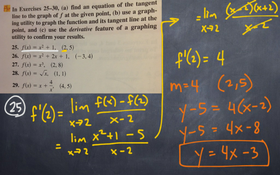 In Exercises 25–30, (a) find an equation of the tangent
line to the graph of f at the given point, (b) use a graph-
ing utility to graph the function and its tangent line at the
point, and (c) use the derivative feature of a graphing
utility to confirm your results.
25. f(x) = x² + 1, (2, 5)
26. f(x) = x² + 2x + 1, (−3, 4)
27. f(x) = x³, (2, 8)
28. f(x) = √x, (1, 1)
29. f(x) = x + 4/x, (4, 5)
25 f'(2) = lim x→2 f(x) - f(2) / x - 2
= lim x→2 x² + 1 - 5 / x - 2
= lim x→2 (x-2)(x+2) / (x-2)
f'(2) = 4
m = 4 (2,5)
y - 5 = 4(x - 2)
y - 5 = 4x - 8
y = 4x - 3